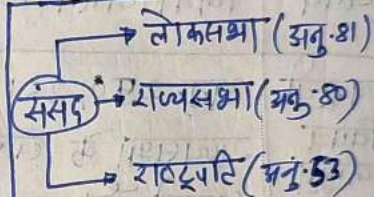 लोकसभा (अनु.81)
संसद
राज्यसभा (अनु.80)
राष्ट्रपति (अनु.53)